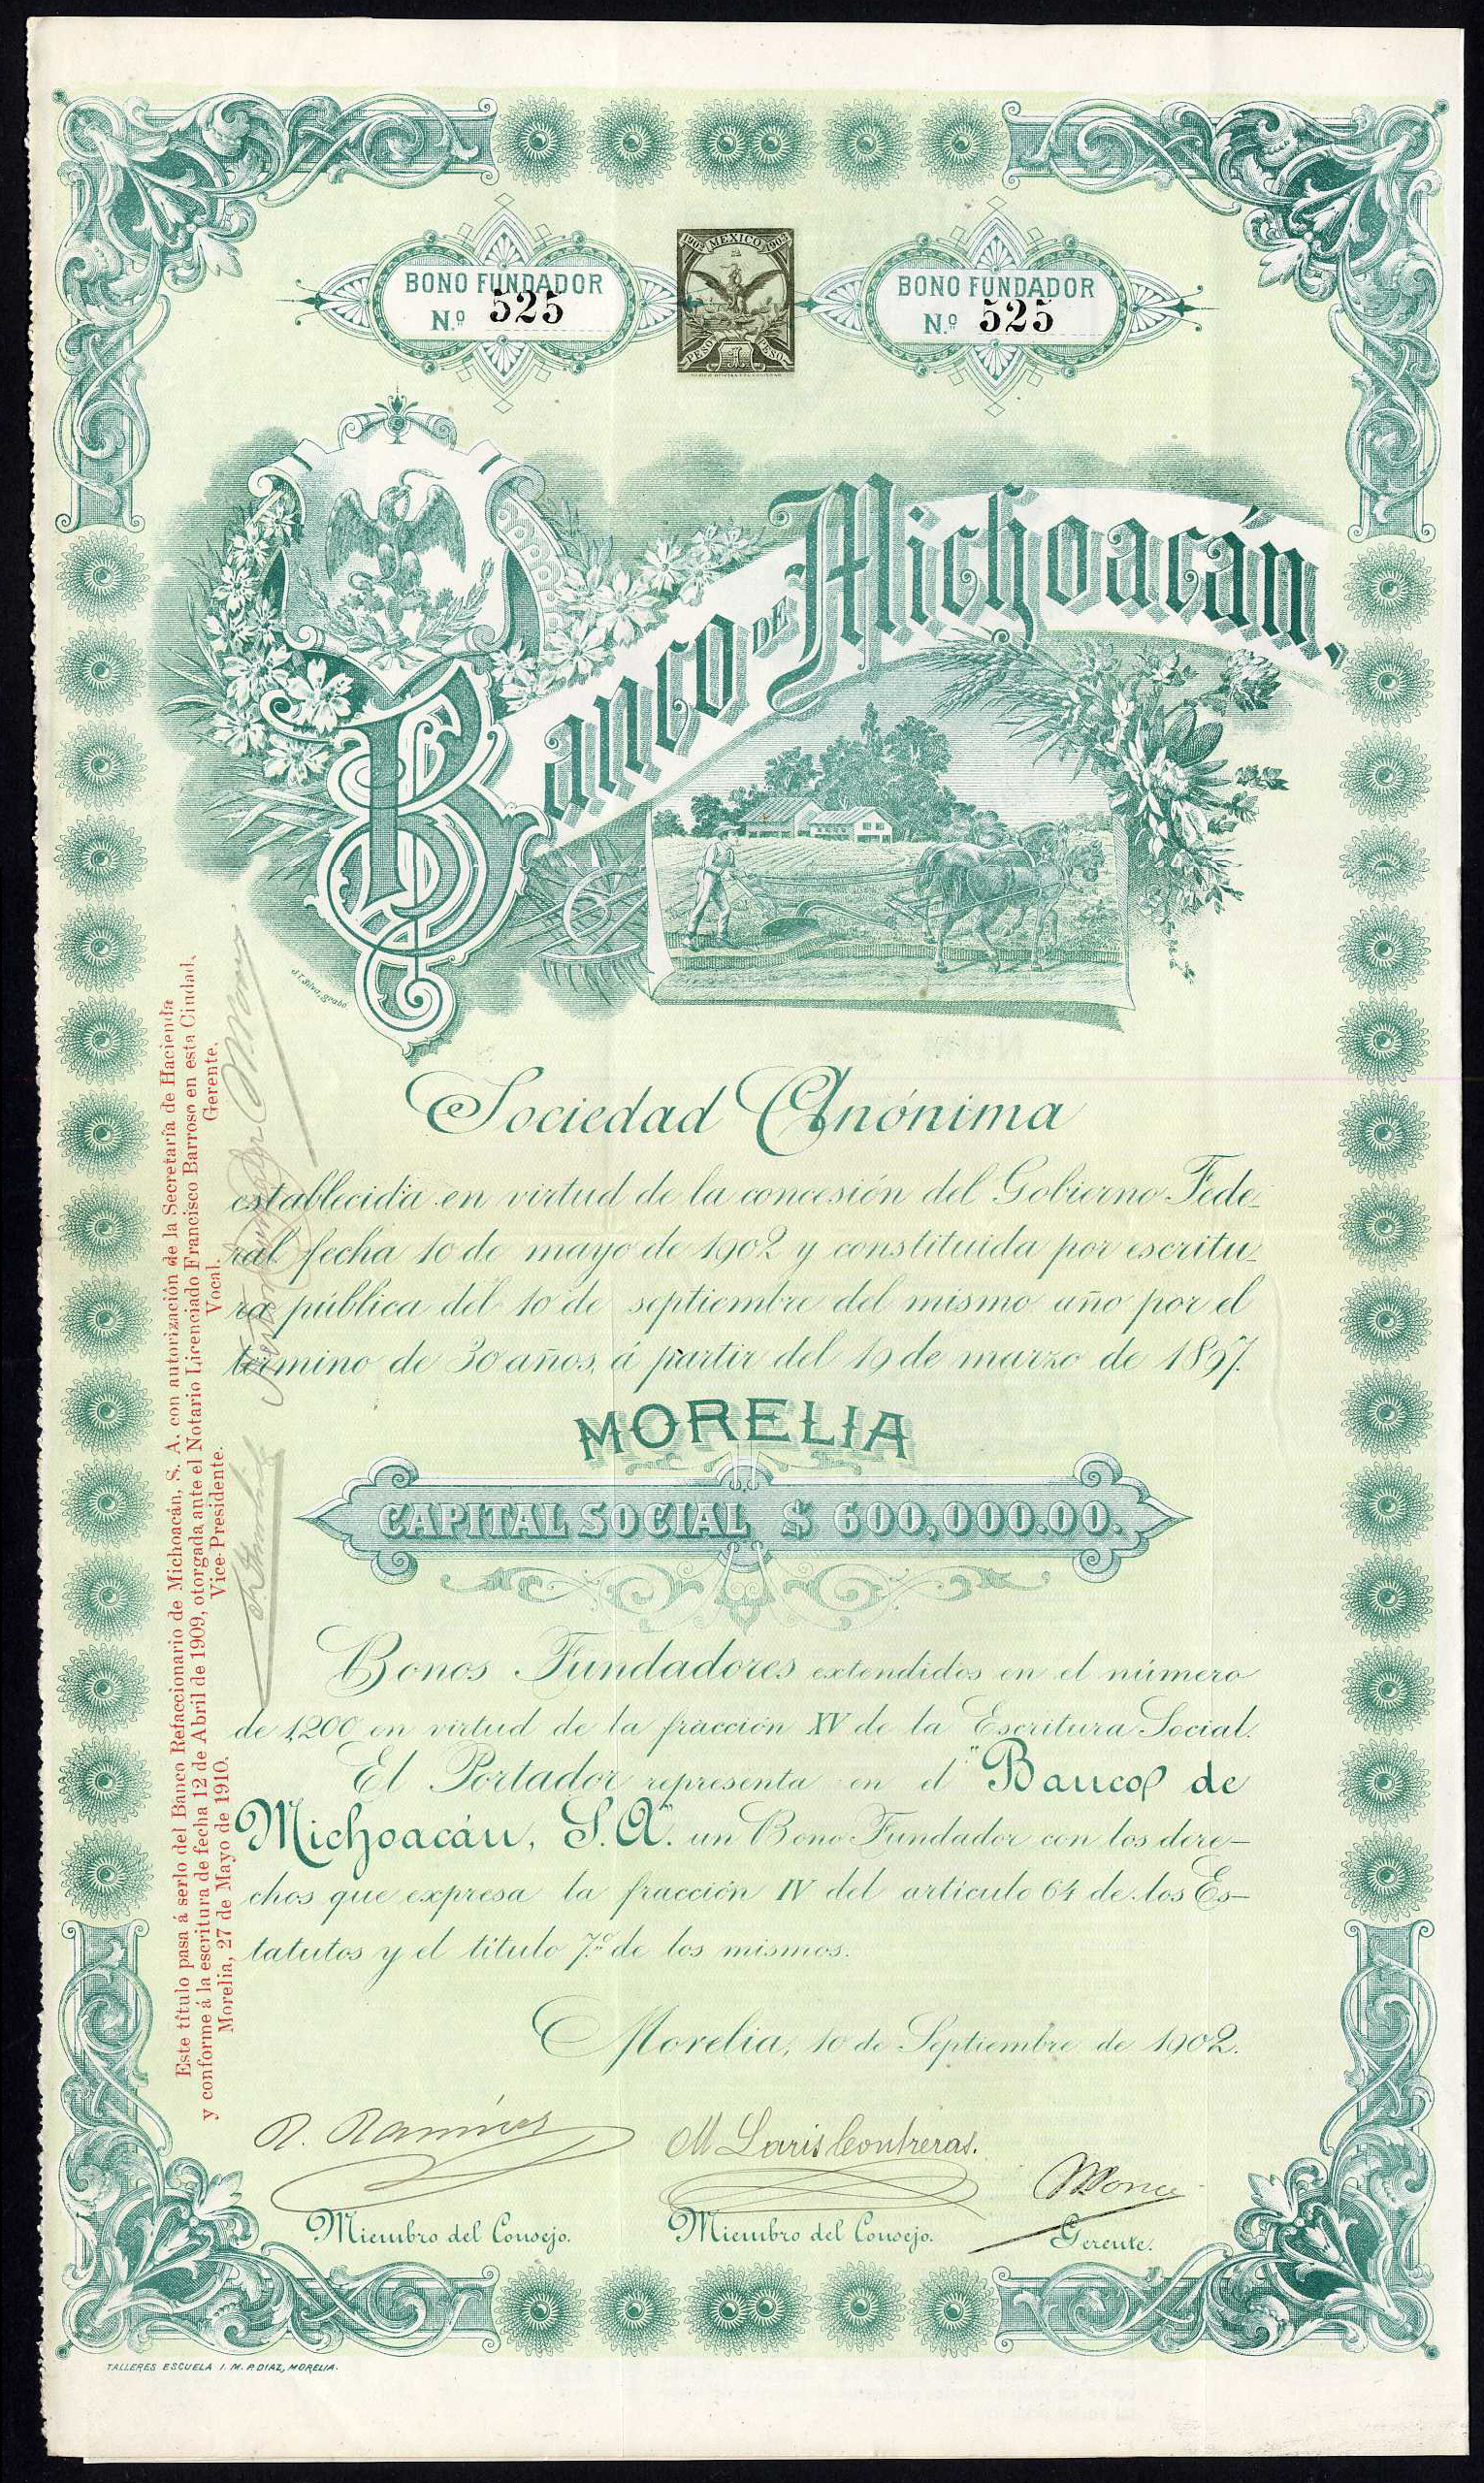 BONO FUNDADOR
Nº 525
1902 MEXICO 1903
PESO 1 PESO
BONO FUNDADOR
Nº 525
Banco DE Michoacán,
Sociedad Anónima
establecida en virtud de la concesión del Gobierno Fede-
ral fecha 10 de mayo de 1902 y constituida por escritu-
ra pública del 10 de septiembre del mismo año por el
término de 30 años, á partir del 19 de marzo de 1897.
MORELIA
CAPITAL SOCIAL $ 600,000.00.
Bonos Fundadores extendidos en el número
de 1,200 en virtud de la fracción XV de la Escritura Social.
El Portador representa en el "Banco de
Michoacán, S.A." un Bono Fundador con los dere-
chos que expresa la fracción IV del artículo 64 de los Es-
tatutos y el título 7º de los mismos.
Morelia, 10 de Septiembre de 1902.
R. Ramírez
M Laris Contreras.
Miembro del Consejo.
Miembro del Consejo.
Gerente.
TALLERES ESCUELA I. M. P. DIAZ, MORELIA.
Este título pasa á serlo del Banco Refaccionario de Michoacán, S. A. con autorización de la Secretaría de Hacienda
y conforme á la escritura de fecha 12 de Abril de 1909, otorgada ante el Notario Licenciado Francisco Barroso en esta Ciudad.
Morelia, 27 de Mayo de 1910.
Vice-Presidente.
Vocal.
Gerente.